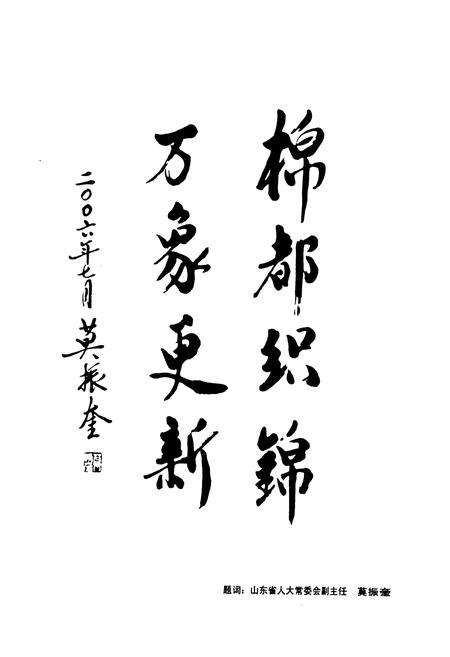 棉都织锦
万象更新
二〇〇六年七月 莫振奎
题词：山东省人大常委会副主任 莫振奎